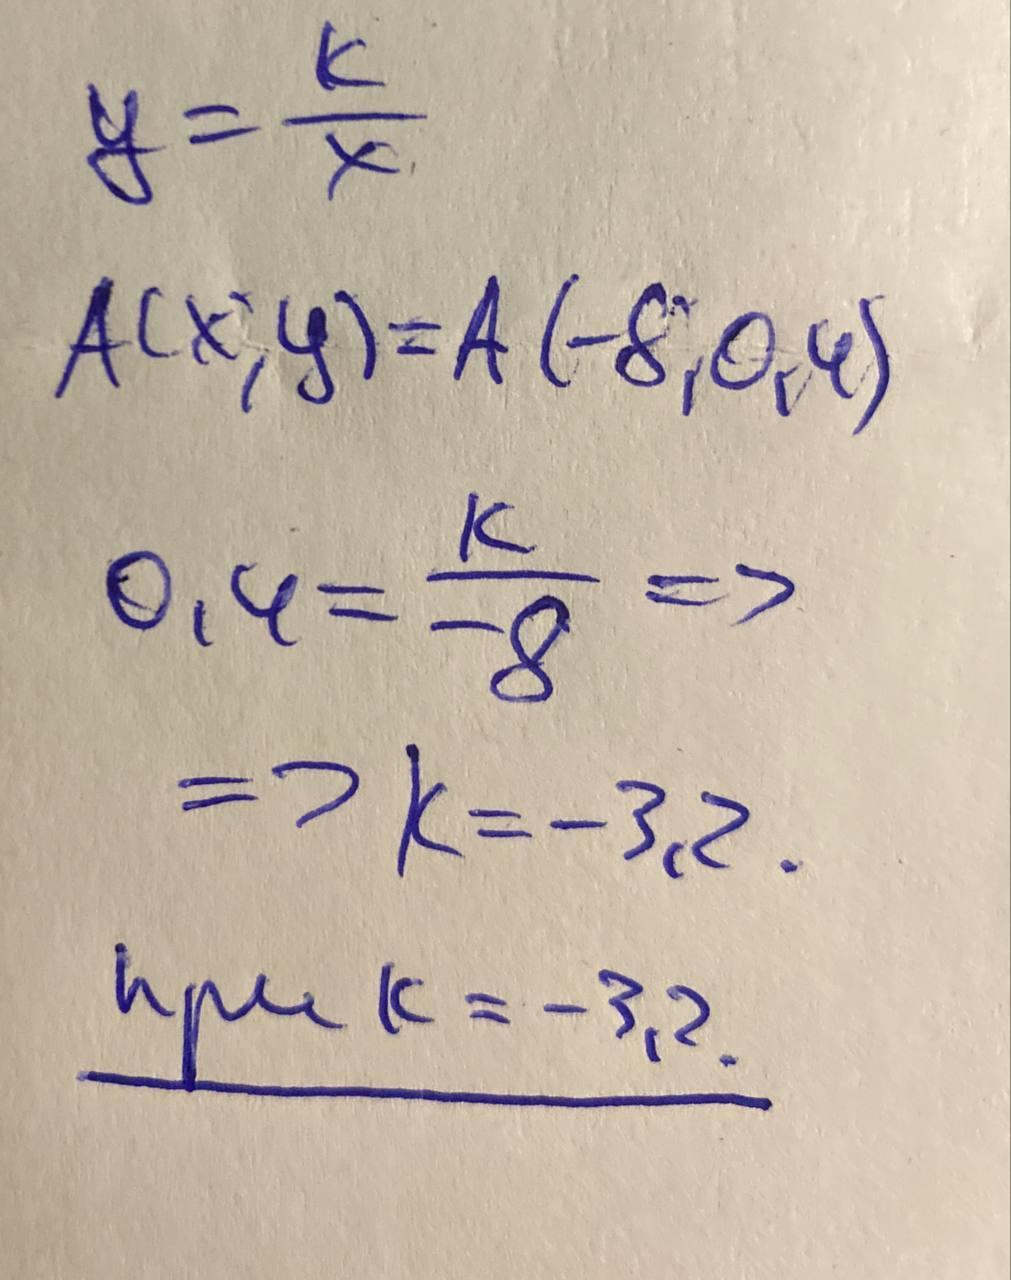 y = к/х
A(x, y) = A(-8, 0,4)
0,4 = к/-8 =>
=> k = -3,2.
при к = -3,2.